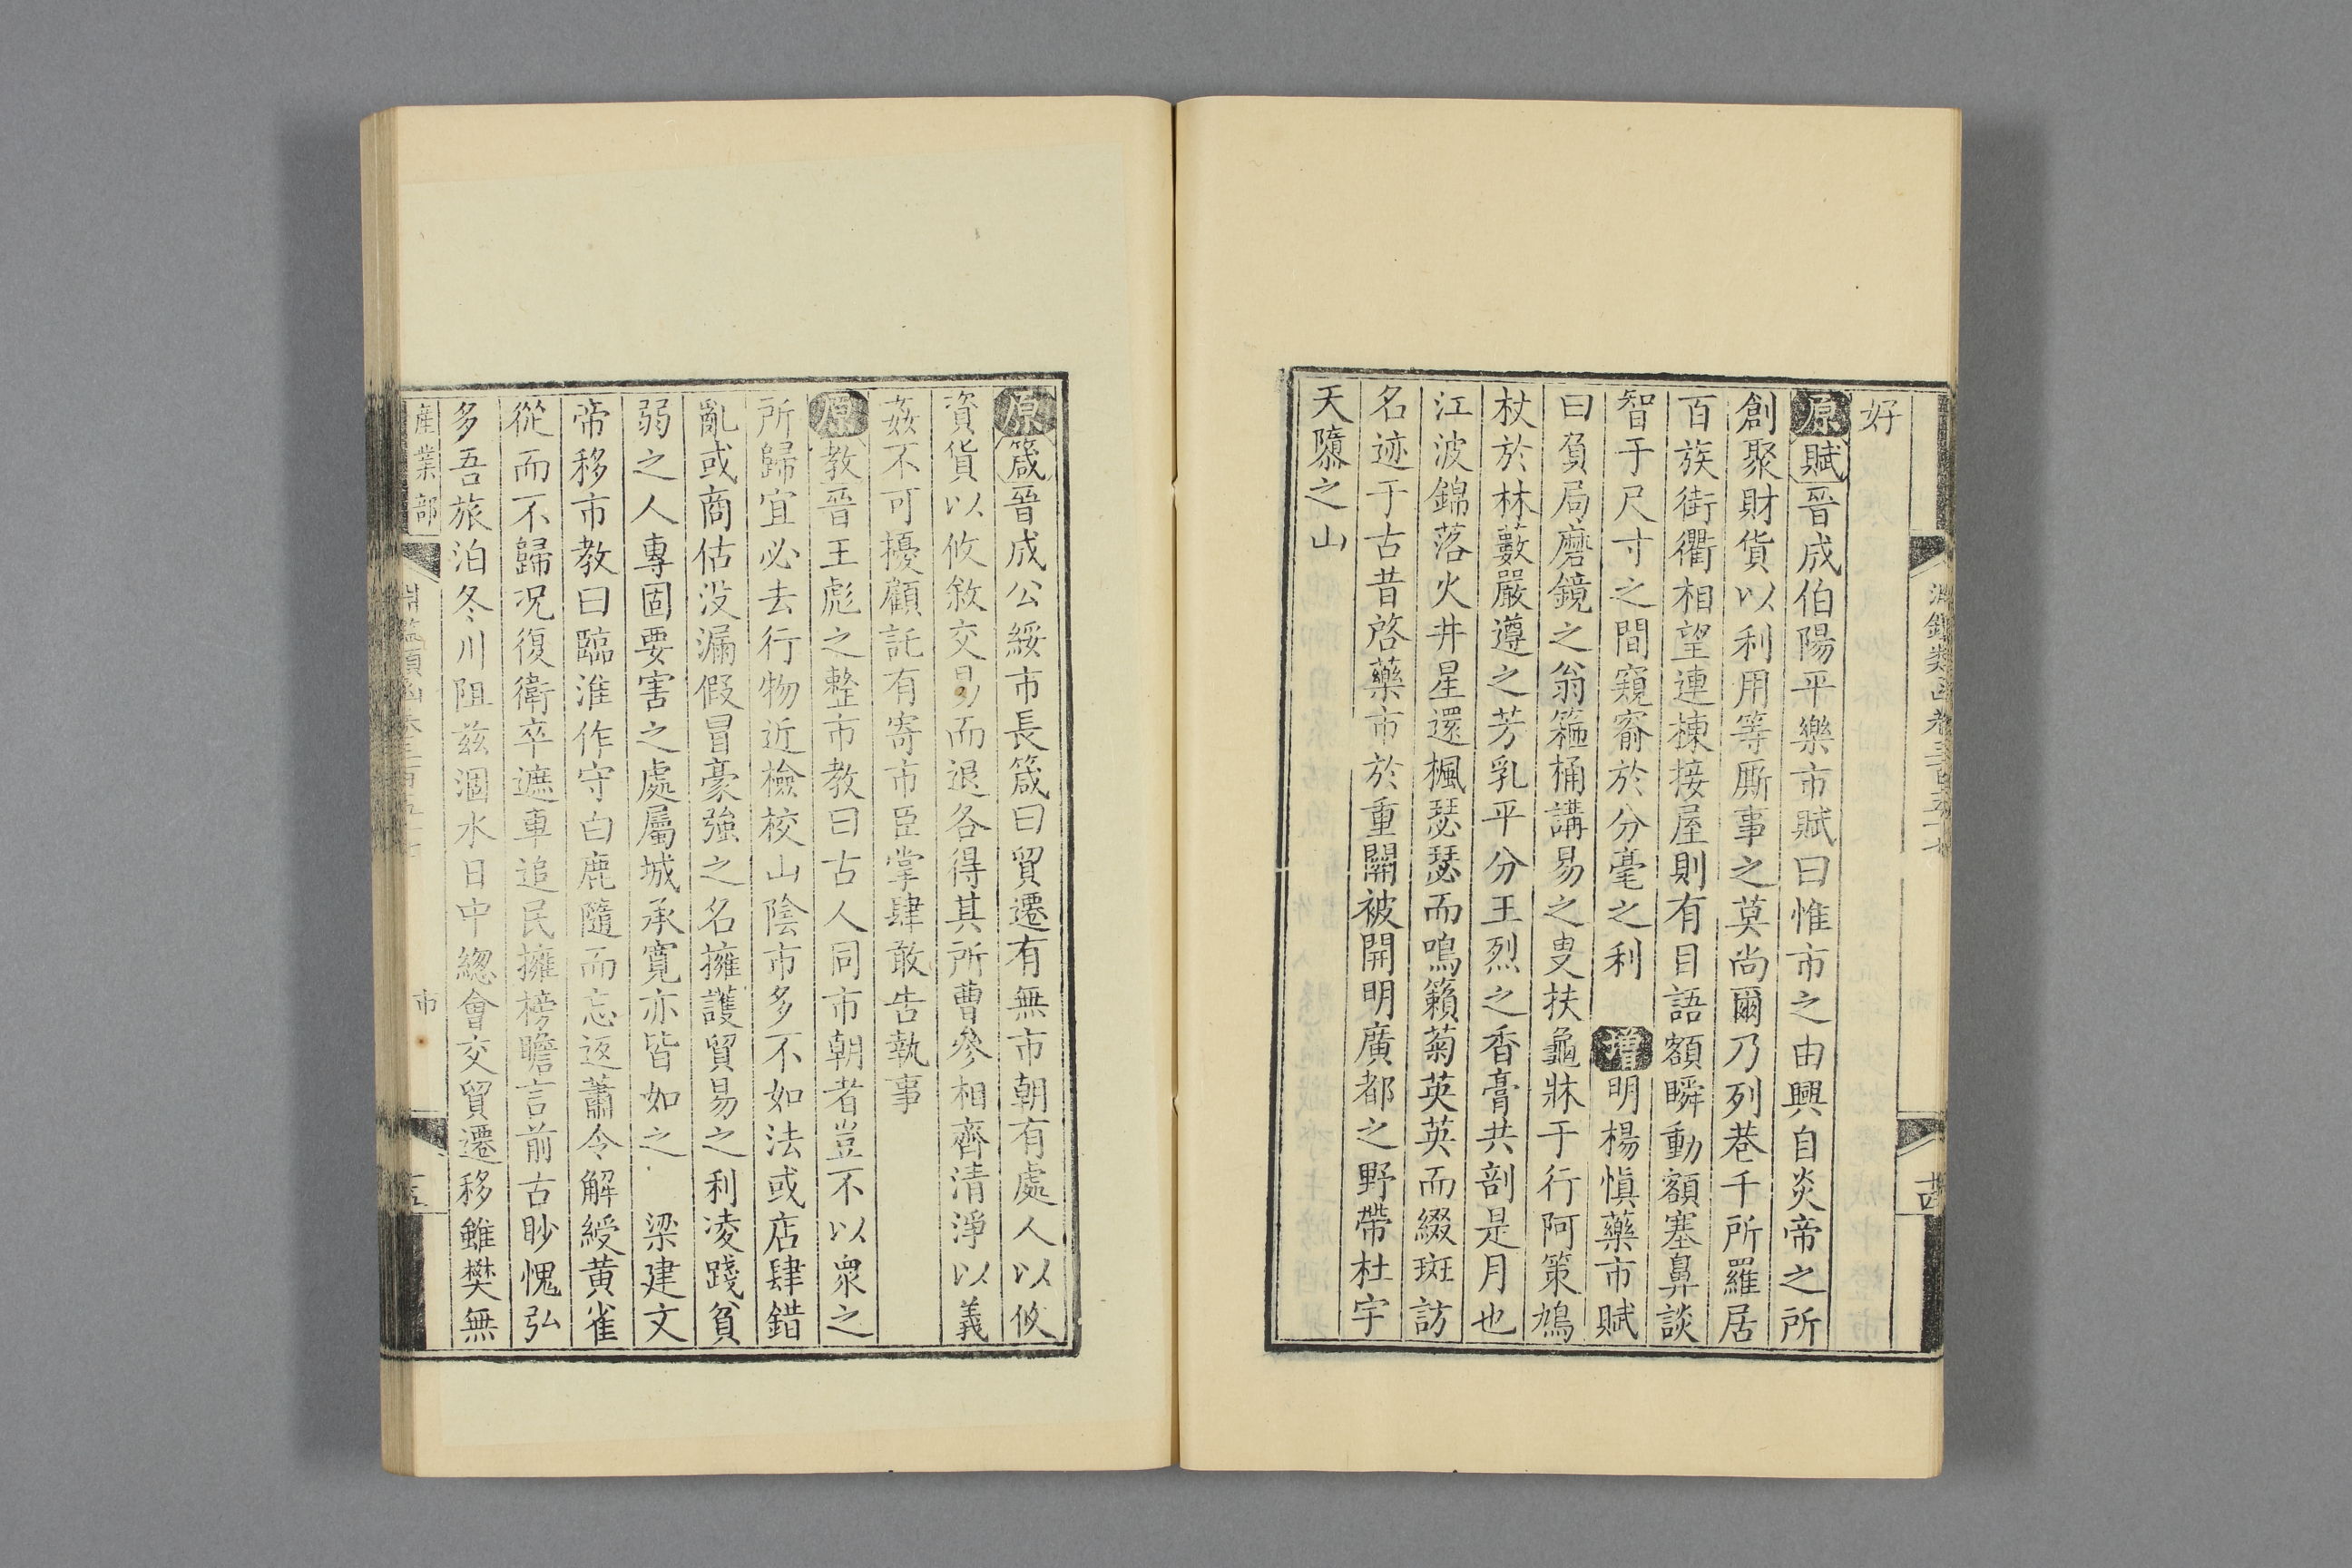 淵鑑類函卷三百五十七
市
古
好
原賦晉成伯陽平樂市賦曰惟市之由興自炎帝之所
創聚財貨以利用等厮事之莫尚爾乃列巷千所羅居
百族街衢相望連棟接屋則有目語額瞬動額塞鼻談
智于尺寸之間窺窬於分毫之利 增明楊愼藥市賦
曰負局磨鏡之翁箍桶講易之叟扶龜牀于行阿策鳩
杖於林藪嚴遵之芳乳平分王烈之香膏共剖是月也
江波錦落火井星還楓瑟瑟而鳴籟菊英英而綴斑訪
名迹于古昔啓藥市於重闢被開明廣都之野帶杜宇
天隳之山
原箴晉成公綏市長箴曰貿遷有無市朝有處人以攸
資貨以攸敘交易而退各得其所曹參相齊清淨以義
姦不可擾顧託有寄市臣掌肆敢告執事
原教晉王彪之整市教曰古人同市朝者豈不以衆之
所歸宜必去行物近檢校山陰市多不如法或店肆錯
亂或商估沒漏假冒豪強之名擁護貿易之利凌踐貧
弱之人專固要害之處屬城承寬亦皆如之 梁建文
帝移市教曰臨淮作守白鹿隨而忘返蕭令解綬黃雀
從而不歸況復衛卒遮車追民擁榜瞻言前古眇愧弘
多吾旅泊冬川阻兹涸水日中總會交貿遷移雖樊無
產業部
淵鑑類函卷三百五十七
市